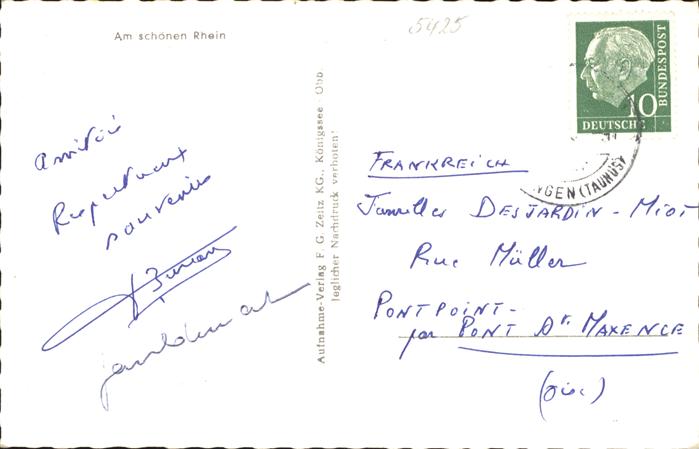 Am schönen Rhein
5425
Amitiés
Respectueux
souvenirs
Aufnahme-Verlag F. G. Zeitz KG., Königssee Obb.
Jeglicher Nachdruck verboten!
10
DEUTSCHE
BUNDESPOST
NGEN (TAUNUS)
FRANKREICH
Familles DESJARDIN - Miot
Rue Müller
PONTPOINT -
par PONT Ste MAXENCE
(Oise)